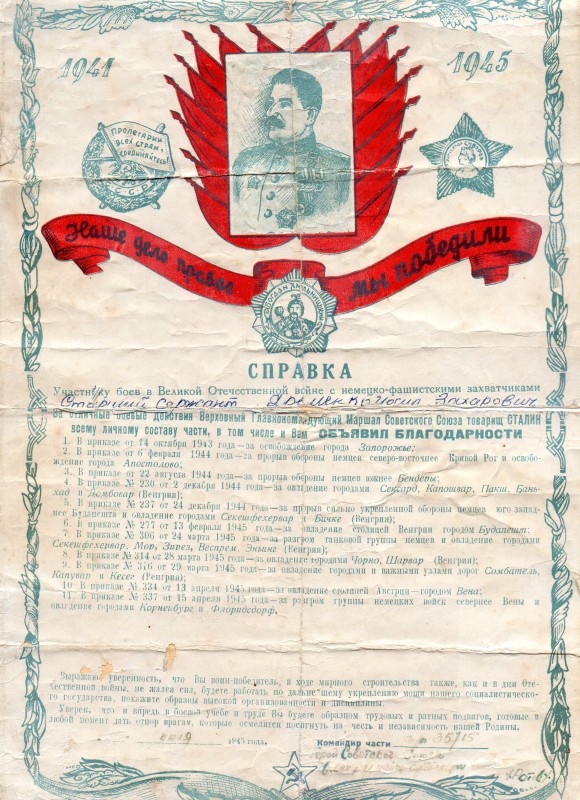 1941
1945
ПРОЛЕТАРИИ
ВСЕХ СТРАН
СОЕДИНЯЙТЕСЬ!
СССР
Наше дело правое
мы победили
БОГДАН ХМЕЛЬНИЦКИЙ
СПРАВКА
Участнику боев в Великой Отечественной войне с немецко-фашистскими захватчиками
Старший сержант Захарович
За отличные боевые действия Верховный Главнокомандующий Маршал Советского Союза товарищ СТАЛИН
всему личному составу части, в том числе и Вам ОБЪЯВИЛ БЛАГОДАРНОСТИ
1. В приказе от 14 октября 1943 года—за освобождение города Запорожье;
2. В приказе от 6 февраля 1944 года—за прорыв обороны немцев северо-восточнее Кривой Рог и освобо-
ждение города Апостолово;
3. В приказе от 22 августа 1944 года—за прорыв обороны немцев южнее Бендеры;
4. В приказе № 230 от 2 декабря 1944 года—за овладение городами Сексард, Капошвар, Пакш, Бонь-
хад и Домбовар (Венгрия);
5. В приказе № 237 от 24 декабря 1944 года—за прорыв сильно укрепленной обороны немцев юго-запад-
нее Будапешта и овладение городами Секешфехервар и Бичке (Венгрия);
6. В приказе № 277 от 13 февраля 1945 года—за овладение столицей Венгрии городом Будапешт;
7. В приказе № 306 от 24 марта 1945 года—за разгром танковой группы немцев и овладение городами
Секешфехервар, Мор, Зирез, Веспрем, Эньинг (Венгрия);
8. В приказе № 314 от 28 марта 1945 года—за овладение городами Чорно, Шарвар (Венгрия);
9. В приказе № 316 от 29 марта 1945 года—за овладение городами и важными узлами дорог Сомбатель,
Капувар и Кесег (Венгрия);
10. В приказе № 334 от 13 апреля 1945 года—за овладение столицей Австрии—городом Вена;
11. В приказе № 337 от 15 апреля 1945 года—за разгром группы немецких войск севернее Вены и
овладение городами Корнебург и Флоридсдорф.
Выражаю уверенность, что Вы воин-победитель, в ходе мирного строительства также, как и в дни Оте-
чественной войны, не жалея сил, будете работать по дальнейшему укреплению мощи нашего социалистическо-
го государства, покажите образцы высокой организованности и дисциплины.
Уверен, что и впредь в боевой учебе и труде Вы будете образцом трудовых и ратных подвигов, готовые в
любой момент дать отпор врагам, которые осмелятся посягнуть на честь и независимость нашей Родины.
июля 1945 года.
Командир части 35715
Герой Советского Союза